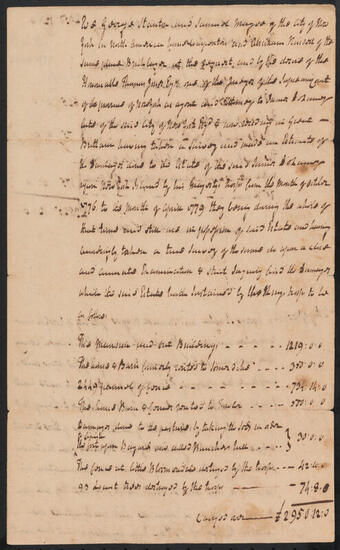 We George Stanton and Samuel of the City of New
York in North America and Abraham of the
same place at the request, and by the desire of the
Honourable Thomas Jones Esqr. one of the Judges of the Supreme Court
of the province of New York as agent and Attorney to James
late of the said City of New York Esqr. & now residing in Great
Brittain having taken a Survey and made an Estimate of
the Damages done to the Estate of the said James
upon New York Island by his Majesty's troops from the Month of October
1776 to the Month of April 1779 they being during the whole of
that time and still are in possession of said Estate and having
accordingly taken a true Survey of the same do upon a close
and accurate Examination & strict Inquiry find the Damages
which the said Estate hath sustained by the Kings troops to be
as follows
The Mansion and out Buildings - - - - 1219.0.0
The house & Barn formerly rented to - - - 300.0.0
2449 pannels of fence - - - - 734.14.0
The house Barn & fences rented to - - - 550.0.0
Damages done to the by taking the sods in order
to the fort upon Bayard's called Bunkers hill - - 30.0.0
The fence at little Bloomendal destroyed by the troops - - 42.10.0
93 trees destroyed by the troops - - 74.8.0
Carryed over - - - £2950.12.0